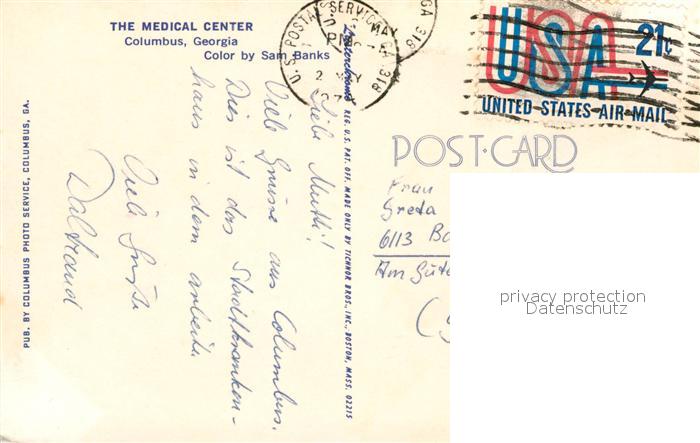 THE MEDICAL CENTER
Columbus, Georgia
Color by Sam Banks
Liebe Mutti!
Viele Grüsse aus Columbus.
Dies ist das Stadtkranken-
haus in dem arbeite
Viele Grüße
PUB. BY COLUMBUS PHOTO SERVICE, COLUMBUS, GA.
REG. U.S. PAT. OFF. MADE ONLY BY TICHNOR BROS., INC., BOSTON, MASS. 02215
U.S. POSTAL SERVICE
MAY
GA 318
USA 21c
UNITED STATES AIR MAIL
POST-CARD
Frau
Greta
6113 Ba
Am Güte
privacy protection
Datenschutz